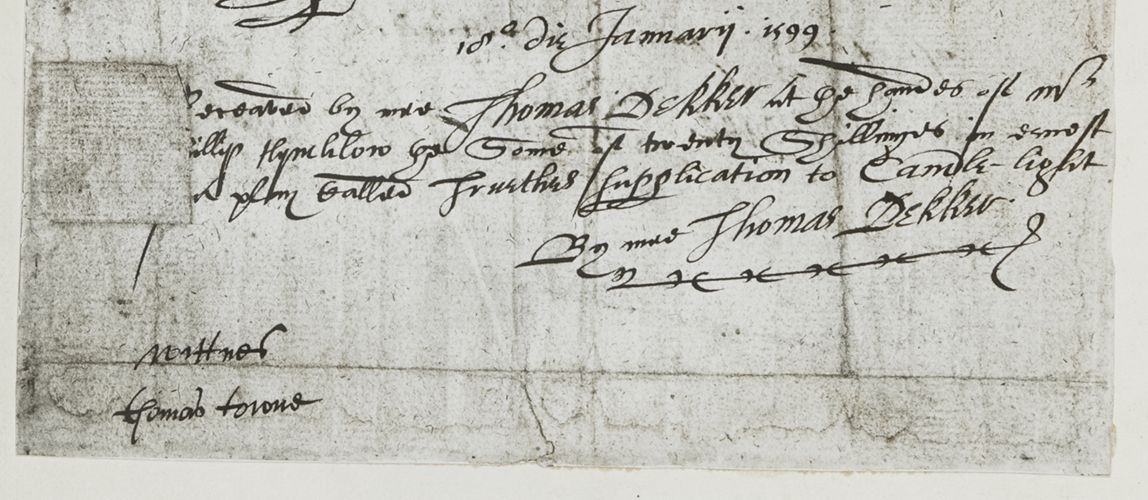 18.º die Januarij . 1599 .
Receaved by mee Thomas Dekker at the handes of mr
illip Hynchlow the Some of twenty Shillinges in ernest
a play Called Truethes supplication to Candle-light
By mee Thomas Dekker .
wittnes
thomas towne